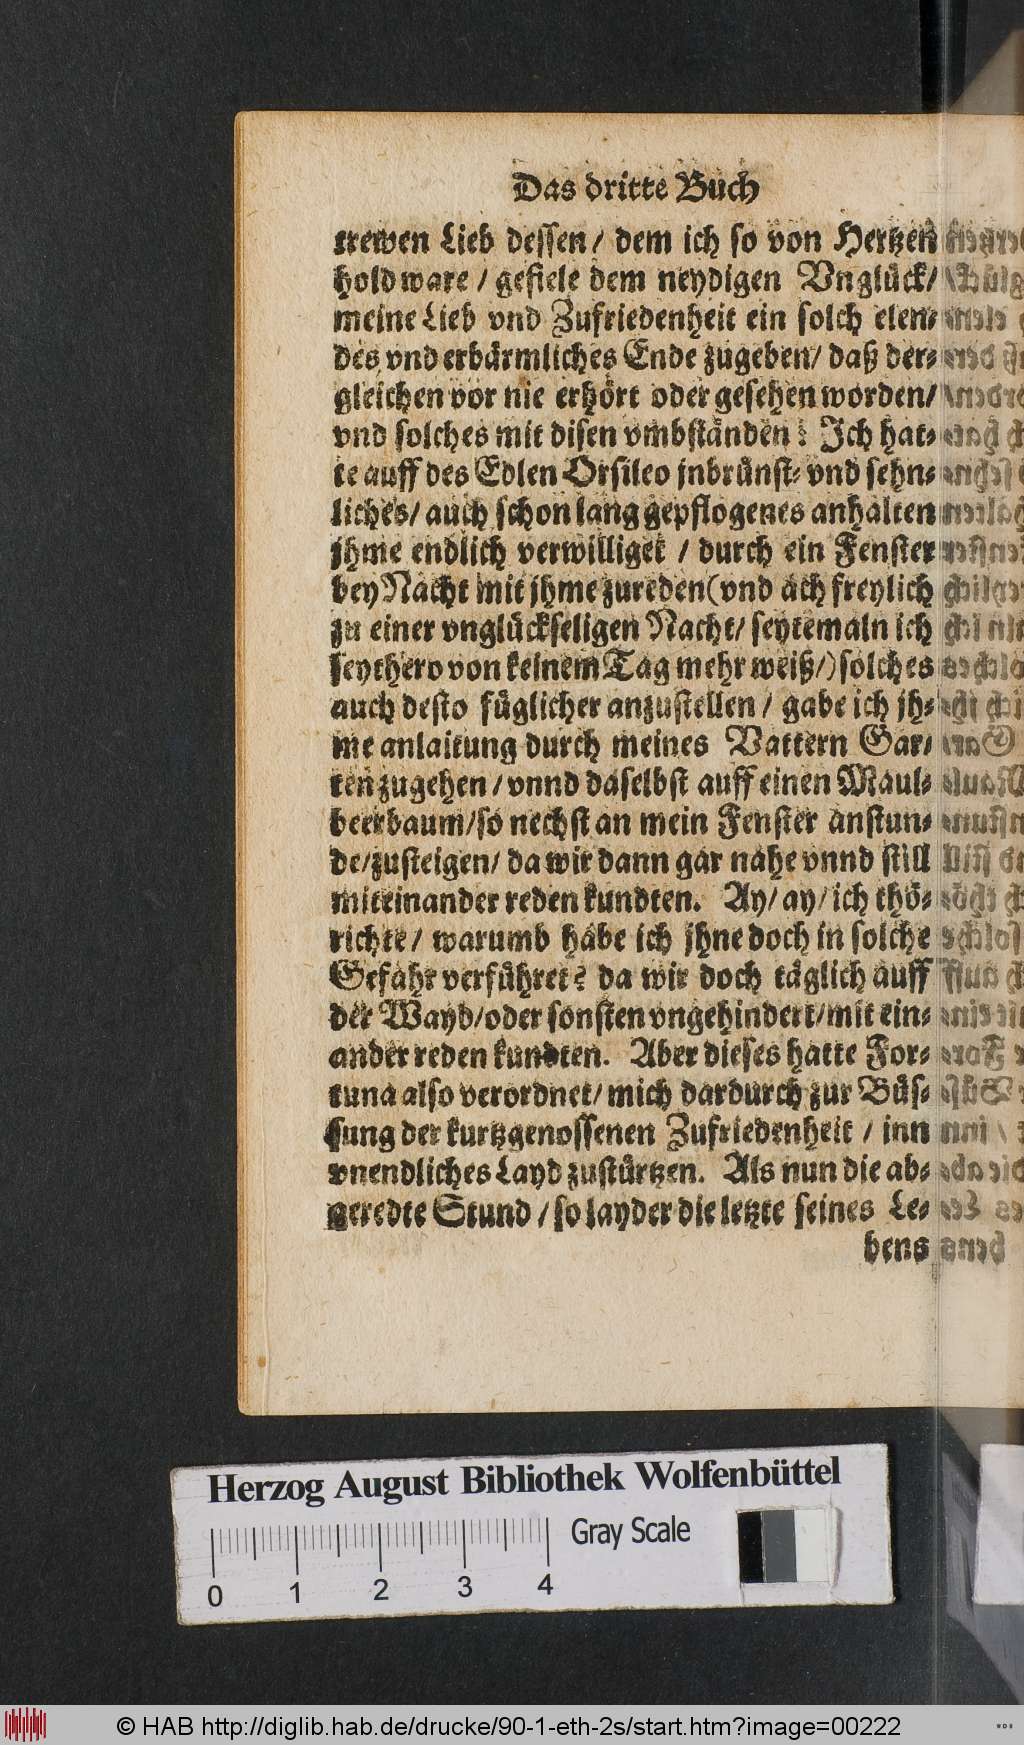 Das dritte Buch
trewen Lieb dessen / dem ich so von Hertzen
hold ware / gefiele dem neydigen Vnglück /
meine Lieb vnd Zufriedenheit ein solch elen⸗
des vnd erbärmliches Ende zugeben / daß der⸗
gleichen vor nie erhört oder gesehen worden /
vnd solches mit disen vmbständen : Ich hat⸗
te auff des Edlen Orsileo jnbrünst⸗ vnd sehn⸗
liches / auch schon lang gepflogenes anhalten
jhme endlich verwilliget / durch ein Fenster
bey Nacht mit jhme zureden (vnd ach freylich
zu einer vnglückseligen Nacht / seytemaln ich
seythero von keinem Tag mehr weiß /) solches
auch desto füglicher anzustellen / gabe ich jh⸗
me anlaitung durch meines Vattern Gar⸗
ten zugehen / vnnd daselbst auff einen Maul⸗
beerbaum / so nechst an mein Fenster anstun⸗
de / zusteigen / da wir dann gar nahe vnnd still
miteinander reden kundten. Ay / ay / ich thö⸗
richte / warumb habe ich jhne doch in solche
Gefahr verführet? da wir doch täglich auff
der Wayd / oder sonsten vngehindert / mit ein⸗
ander reden kundten. Aber dieses hatte For⸗
tuna also verordnet / mich dardurch zur Büs⸗
sung der kurtzgenossenen Zufriedenheit / inn
vnendliches Layd zustürtzen. Als nun die ab⸗
geredte Stund / so layder die letzte seines Le⸗
bens
Herzog August Bibliothek Wolfenbüttel
Gray Scale
0 1 2 3 4
© HAB http://diglib.hab.de/drucke/90-1-eth-2s/start.htm?image=00222